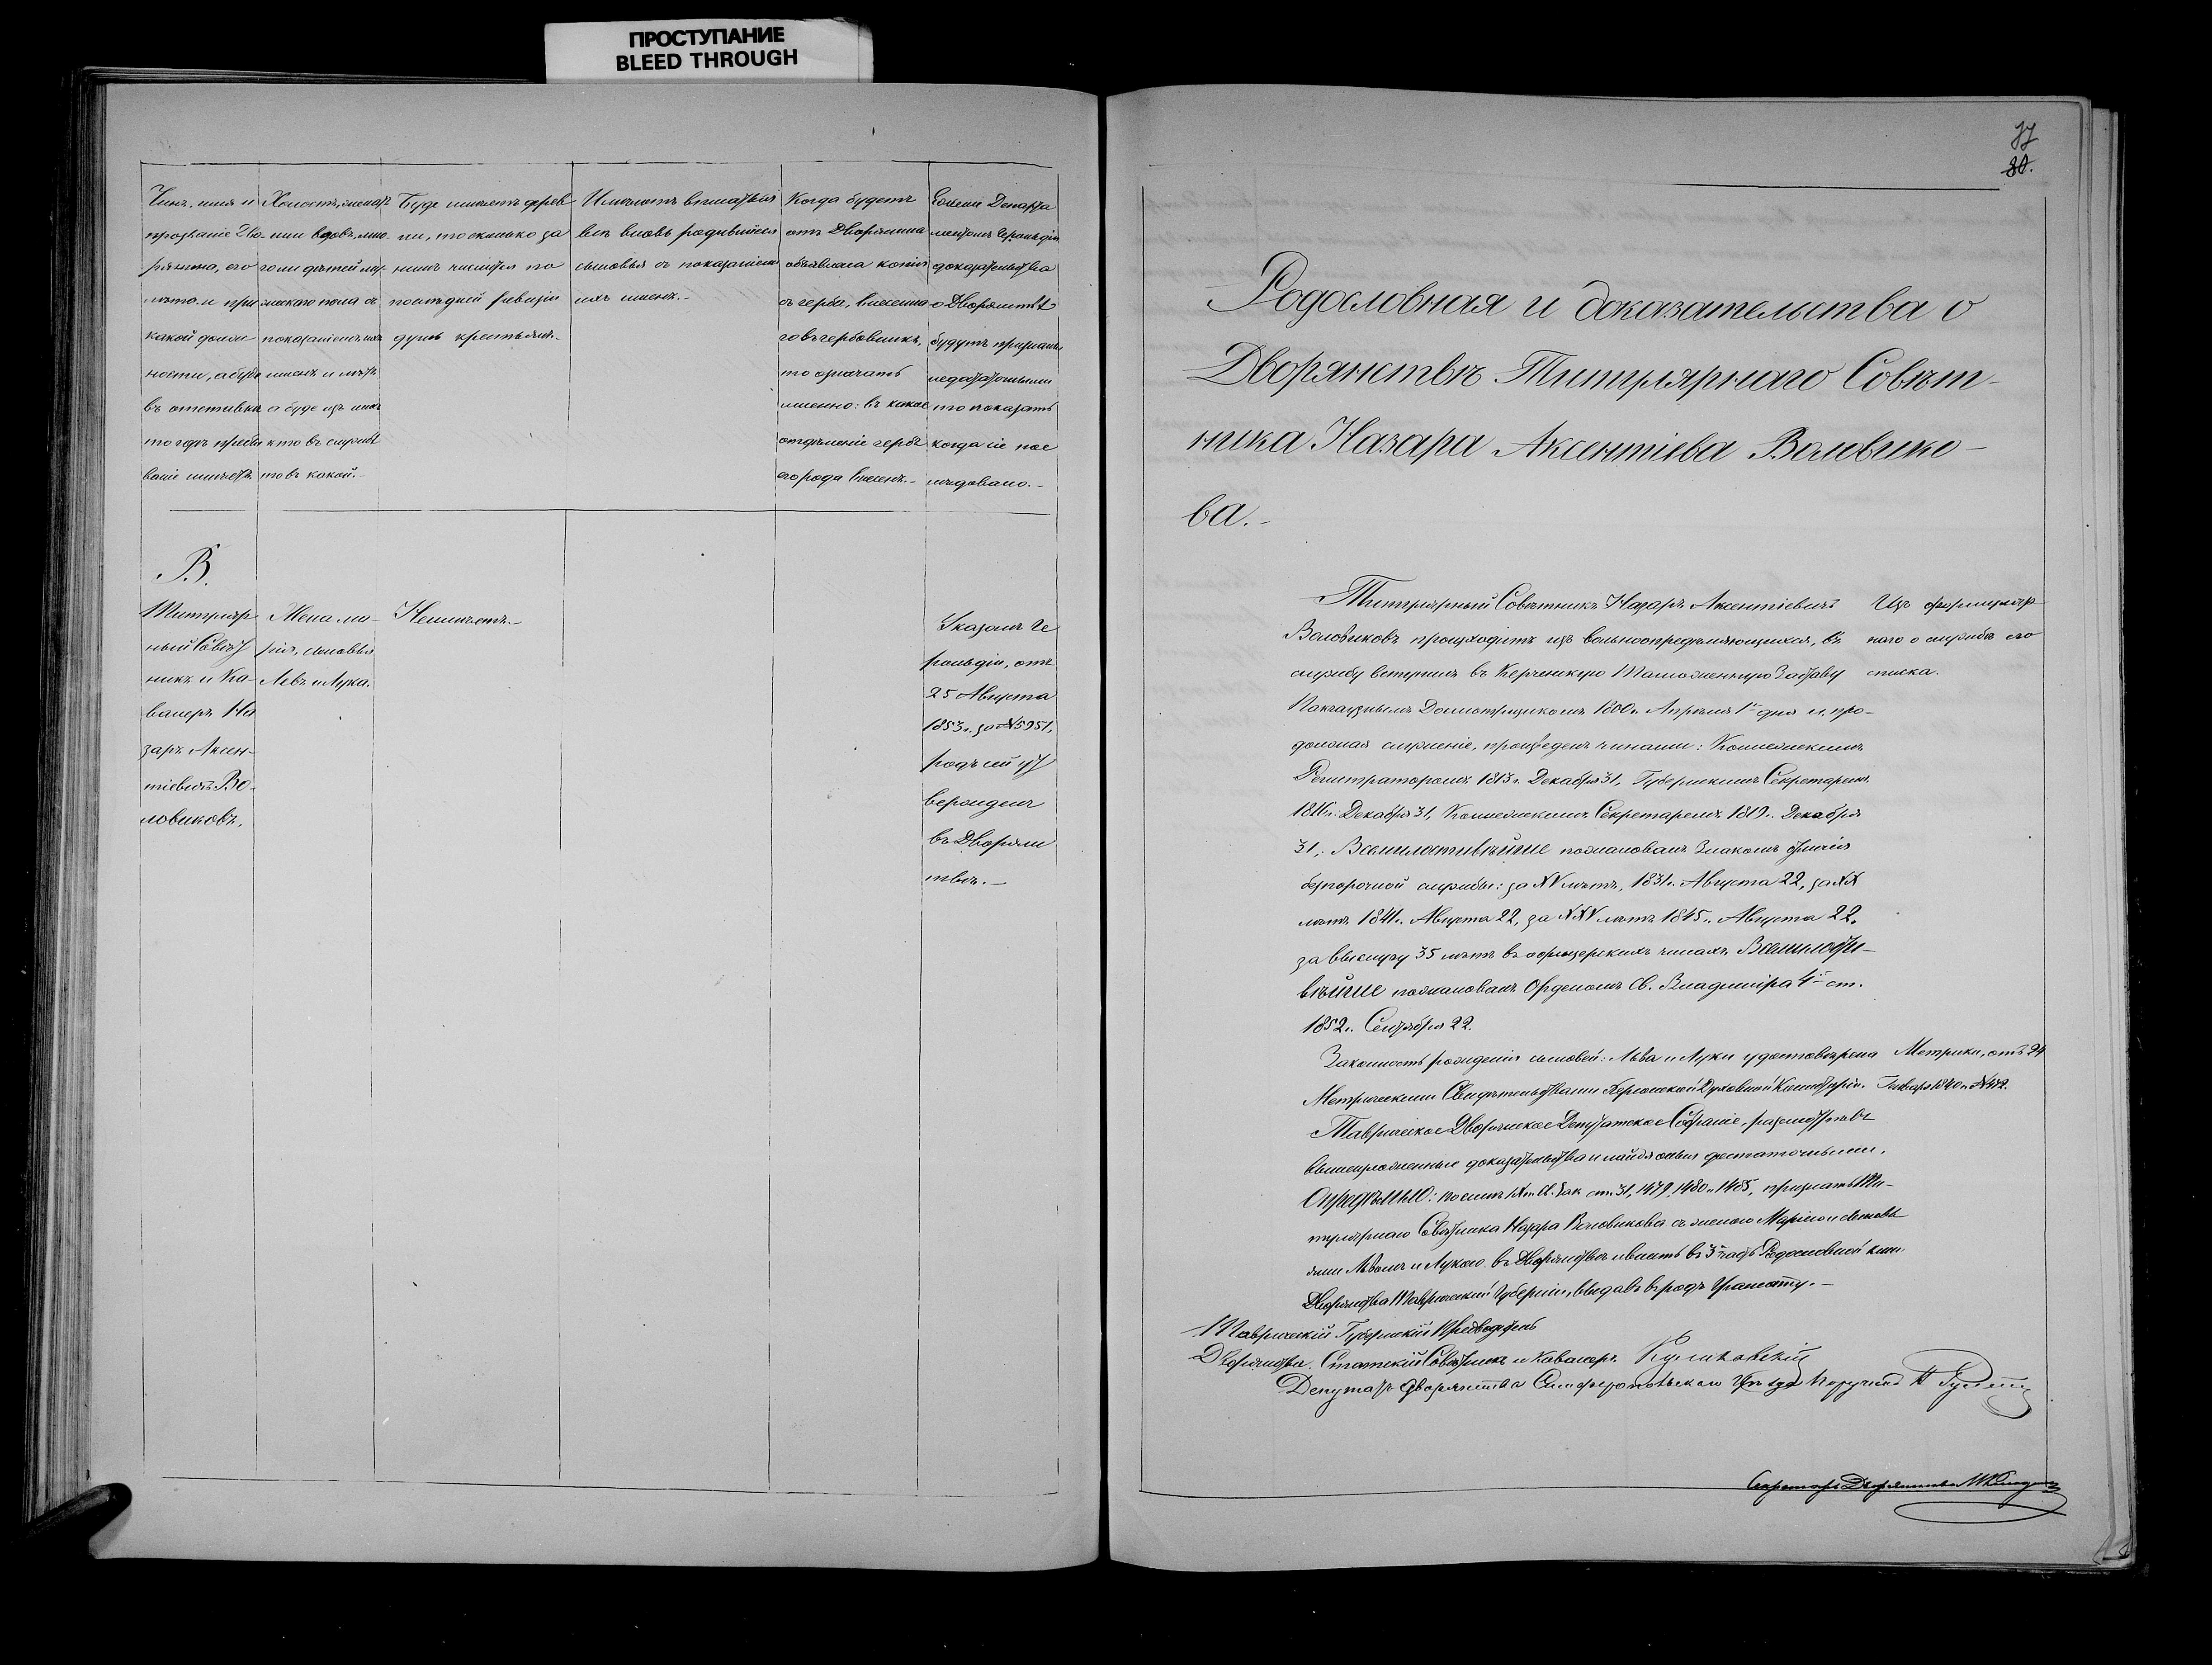 ПРОСТУПАНИЕ
BLEED THROUGH
Чинъ, имя и
прозваніе Дво-
рянина, его
лѣта и при
какой долж
ности, а буде
въ отставкѣ
то гдѣ пребы
ваніе имѣетъ.
Холостъ, женатъ
или вдовъ, мно-
го ли дѣтей му-
жескаго пола съ
показаніемъ ихъ
именъ и лѣтъ
а буде изъ нихъ
кто въ службѣ
то въ какой.-
Буде имѣетъ дерев
ни, то сколько за
нимъ числится по
послѣдней ревизіи
душъ крестьянъ.-
Имѣютъ вписаться
всѣ вновь родившіеся
сыновья съ показаніемъ
ихъ именъ.-
Когда будетъ
отъ Дворянина
объявлена копія
съ герба, внесенна
го въ гербовникъ,
то означать
именно: въ какое
отдѣленіе гербъ
его рода внесенъ.-
Ежели Департа
ментомъ Герольдіи
доказательства
о Дворянствѣ
будутъ признаны
недостаточными
то показать
когда сіе пос
лѣдовало.-
В.
Титуляр
ный Совѣт
никъ и Ка-
валеръ На
заръ Аксен-
тіевичъ Во-
ловиковъ.
Жена Ма-
рія, сыновья
Левъ и Лука.
Неимѣетъ.-
Указомъ Ге
рольдіи, отъ
25 Августа
1853 г. за № 5951,
родъ сей ут
вержденъ
въ Дворян
ствѣ.-
37
30.
Родословная и доказательства о
Дворянствѣ Титулярнаго Совѣт-
ника Назара Аксентіева Воловико-
ва.-
Титулярный Совѣтникъ Назаръ Аксентіевичъ
Воловиковъ происходитъ изъ вольноопредѣляющихся, въ
службу вступилъ въ Керченскую Таможенную Заставу
Пакгаузнымъ Досмотрщикомъ 1800 г. Апрѣля 1го дня и, про-
должая служеніе, произведенъ чинами: Коллежскимъ
Регистраторомъ 1813 г. Декабря 31, Губернскимъ Секретаремъ
1816 г. Декабря 31, Коллежскимъ Секретаремъ 1819 г. Декабря
31; Всемилостивѣйше пожалованъ Знакомъ отличія
безпорочной службы: за XV лѣтъ, 1831 г. Августа 22, за XX
лѣтъ 1841 г. Августа 22, за XXV лѣтъ 1845 г. Августа 22.
за выслугу 35 лѣтъ въ офицерскихъ чинахъ Всемилости-
вѣйше пожалованъ Орденомъ Св. Владиміра 4й ст.
1852 г. Сентября 22.
Изъ формуляр
наго о службѣ его
списка.
Законность рожденія сыновей: Льва и Луки удостовѣрена
Метрическими Свидѣтельствами Херсонской Духовной Консисторіи.
Метрики, отъ 24
Января 1840 г. № 472.
Таврическое Дворянское Депутатское Собраніе, разсмотрѣвъ
вышеизложенныя доказательства и найдя оныя достаточными,
Опредѣлило: по силѣ IX т. Св. Зак. ст. 31, 1479, 1480 и 1485, признать Ти-
тулярнаго Совѣтника Назара Воловикова съ женою Маріею и сыновь
ями Львомъ и Лукою въ Дворянствѣ и внесть въ 3ю часть Родословной книги
Дворянства Таврической Губерніи, выдавъ въ родъ Грамоту.-
Таврическій Губернскій Предводитель
Дворянства, Статскій Совѣтникъ и Кавалеръ
Депутатъ Дворянства Симферопольскаго Уѣзда Поручикъ
Секретарь Дворянства